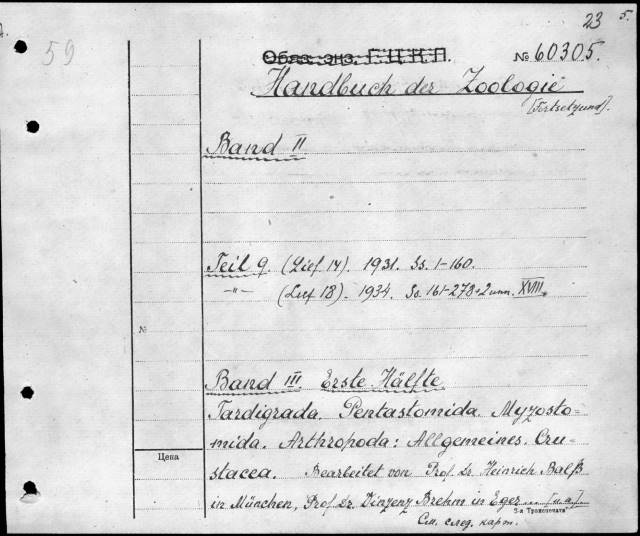 23 5.
59
Образ. экз. Г.Ц.К.П. № 60305.
Handbuch der Zoologie
[Fortsetzung].
Band II.
Teil 9. (Lief 14). 1931. Ss. 1-160.
-"- (Lief 18). 1934. Ss. 161-278+2 unn. XVIII.
№
Band III. Erste Hälfte.
Tardigrada. Pentastomida. Myzosto=
mida. Arthropoda: Allgemeines. Cru=
Цена
stacea. Bearbeitet von Prof. Dr. Heinrich Balß
in München, Prof. Dr. Vinzenz Brehm in Eger ... [u.a.].
См. след. карт.